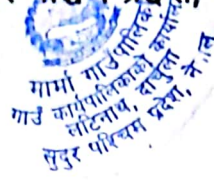 मार्मा गाउँपालिका
गाउँ कार्यपालिकाको कार्यालय
लटिनाथ, दार्चुला
सुदुर पश्चिम प्रदेश, नेपाल